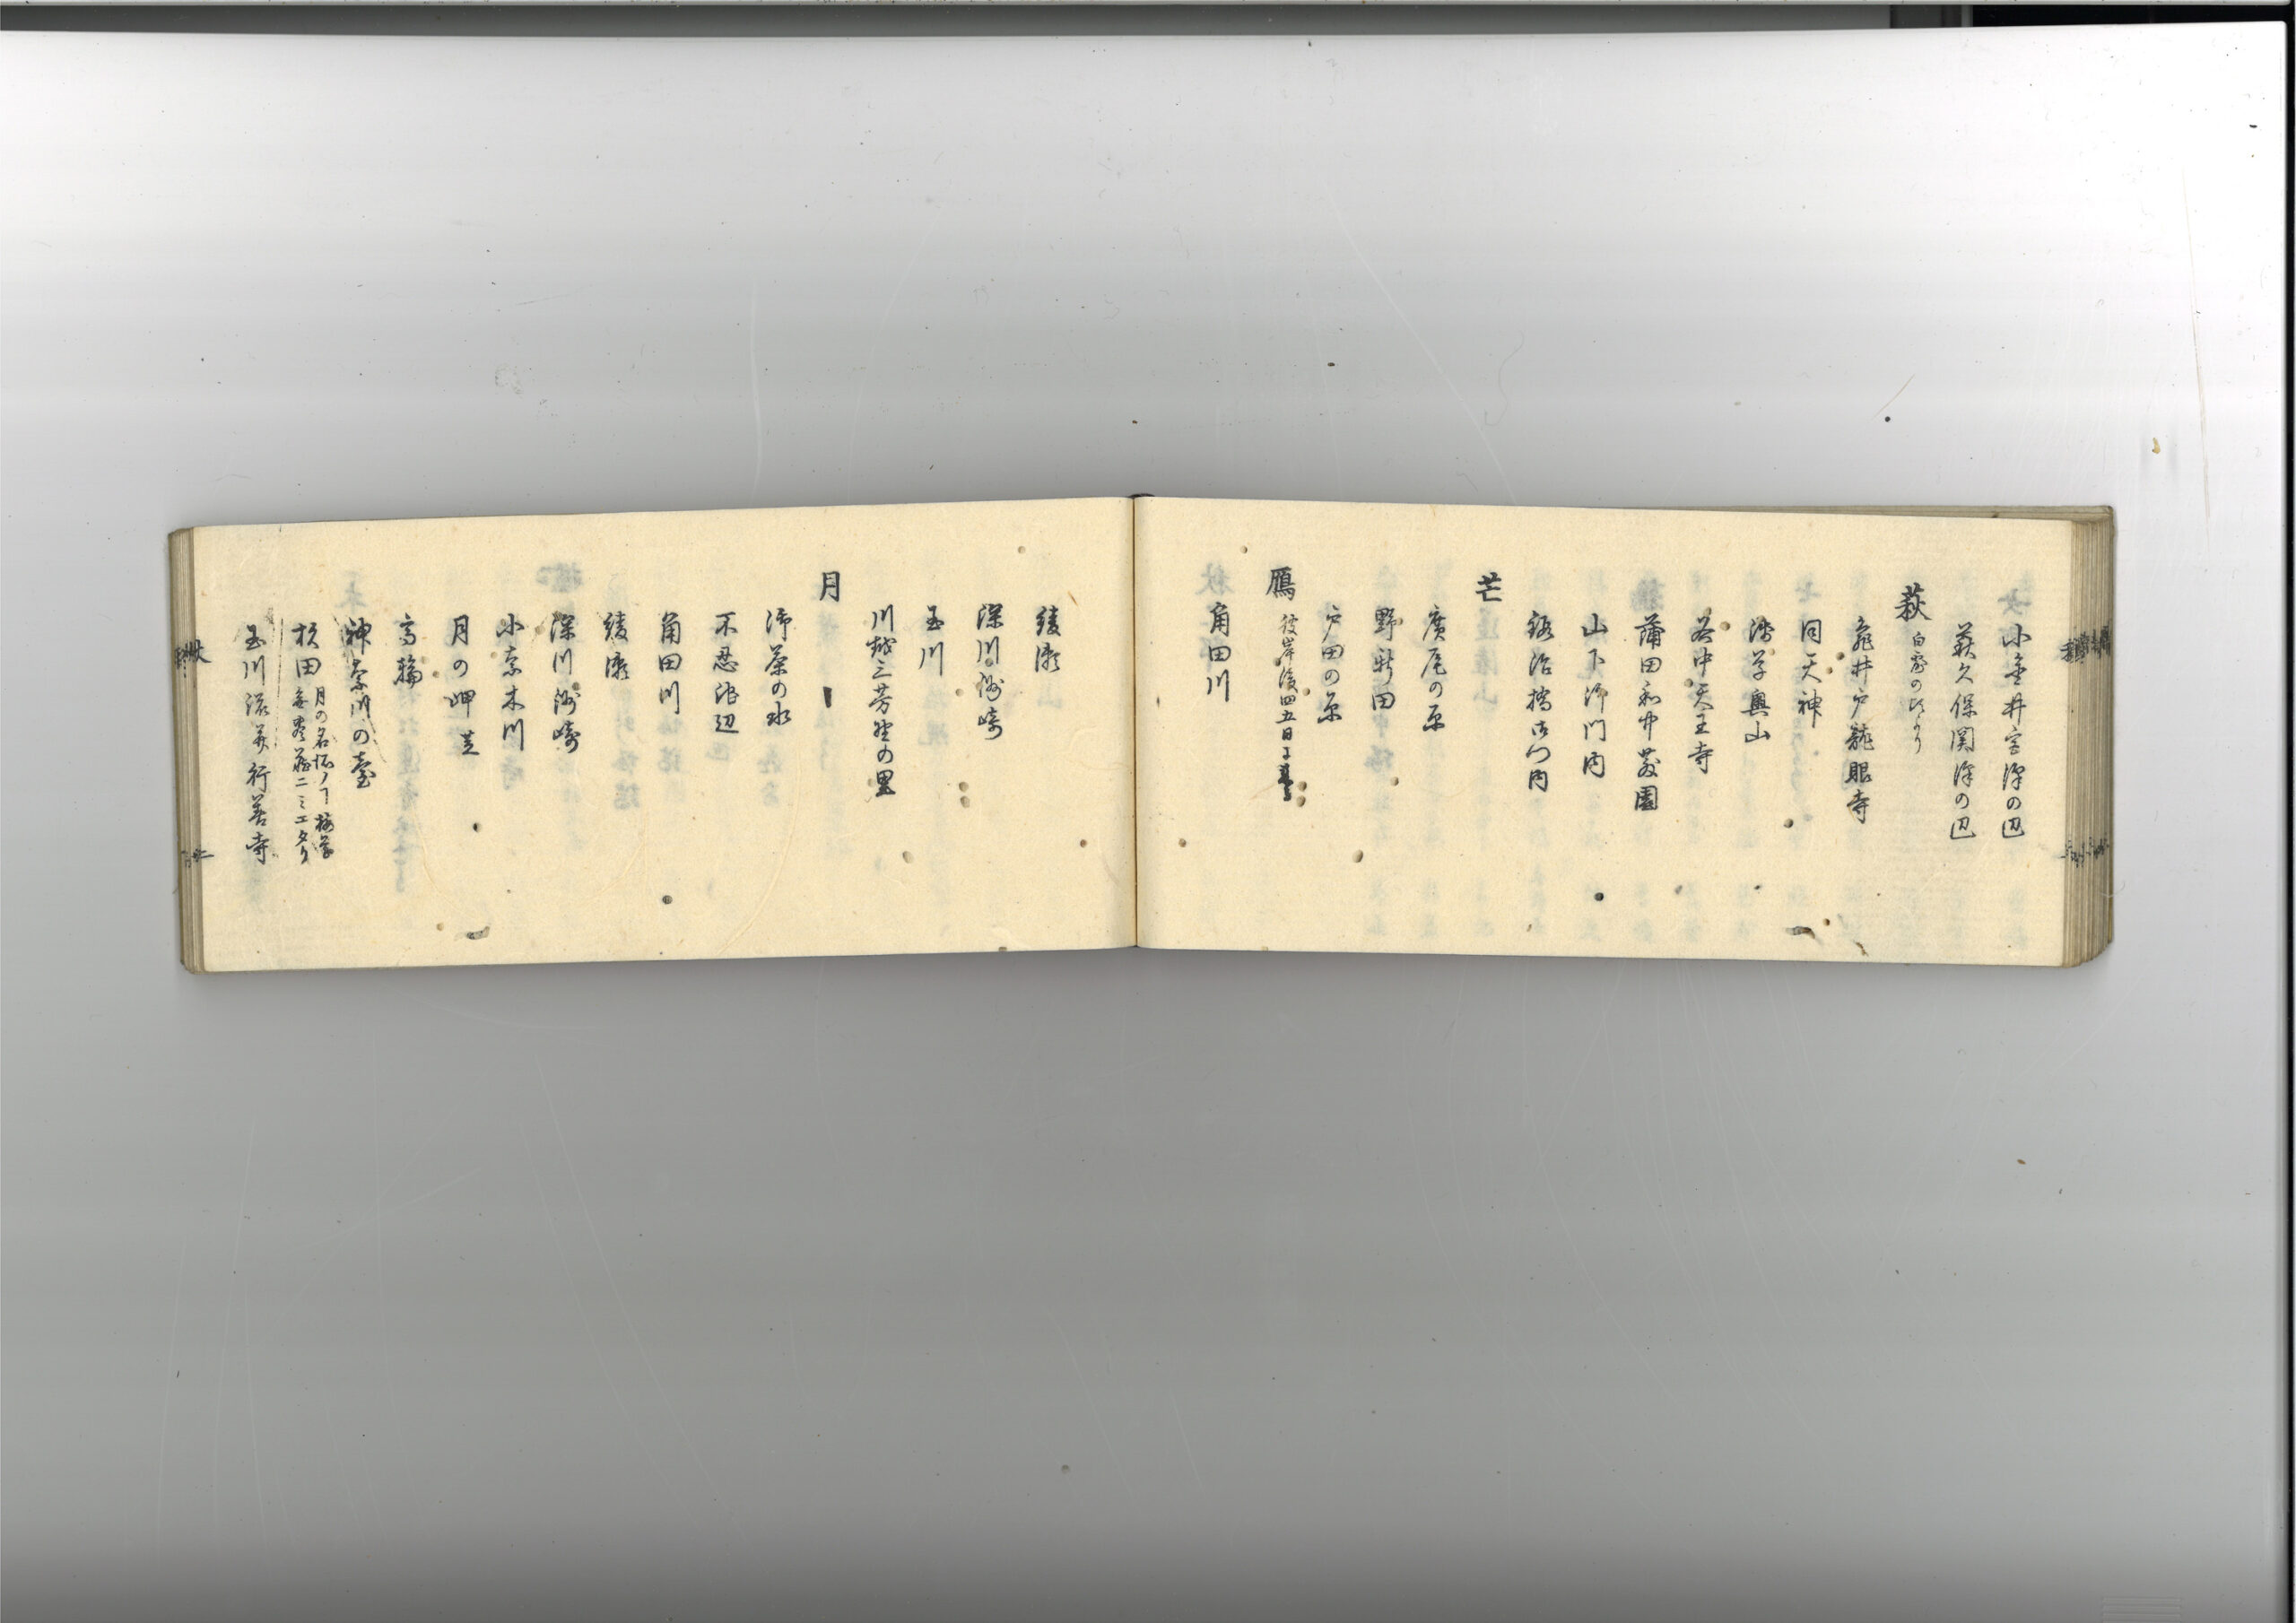 小金井宮沢の辺
萩久保関沢の辺
萩 白露の比より
亀井戸龍眼寺
同天神
浅草奥山
谷中天王寺
蒲田和中散園
山下御門内
鍛冶橋御門内
芒
廣尾の原
野新田
戸田の原
雁 彼岸後四五日
角田川
綾瀬
深川洲崎
玉川
川越三芳野の里
月
御茶の水
不忍池辺
角田川
綾瀬
深川洲崎
小奈木川
月の岬 芝
高輪
神奈川の臺
杉田 月の名所ノヿ梅
無尽蔵ニミエタリ
玉川 行善寺